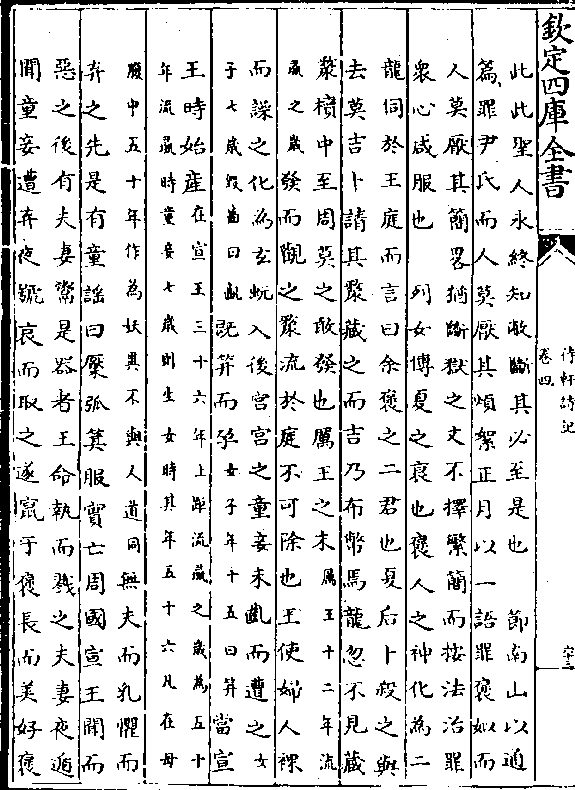 欽定四庫全書
待軒詩記
卷四
六十三
此此聖人永終知敝斷其必至是也　節南山以通
篇罪尹氏而人莫厭其煩絮正月以一語罪褒姒而
人莫厭其簡畧猶斷獄之文不擇繁簡而按法治罪
衆心咸服也　列女傳夏之衰也褒人之神化為二
龍伺於王庭而言曰余褒之二君也夏后卜殺之與
去莫吉卜請其漦藏之而吉乃布幣焉龍忽不見藏
漦櫝中至周莫之敢發也厲王之末厲王十二年流
彘之歲發而觀之漦流於庭不可除也王使婦人裸
而譟之化為玄蚖入後宮宮之童妾未齔而遭之女
子七歲毀齒曰齔既笄而孕女子年十五曰笄當宣
王時始産在宣王三十六年上距流彘之歲為五十
年流彘時童妾七歲則生女時其年五十六凡在母
腹中五十年作為妖異不與人道同無夫而乳懼而
弃之先是有童謡曰檿弧箕服實亡周國宣王聞而
惡之後有夫妻鬻是器者王命執而戮之夫妻夜遁
聞童妾遭弃夜號哀而取之遂竄于褒長而美好褒